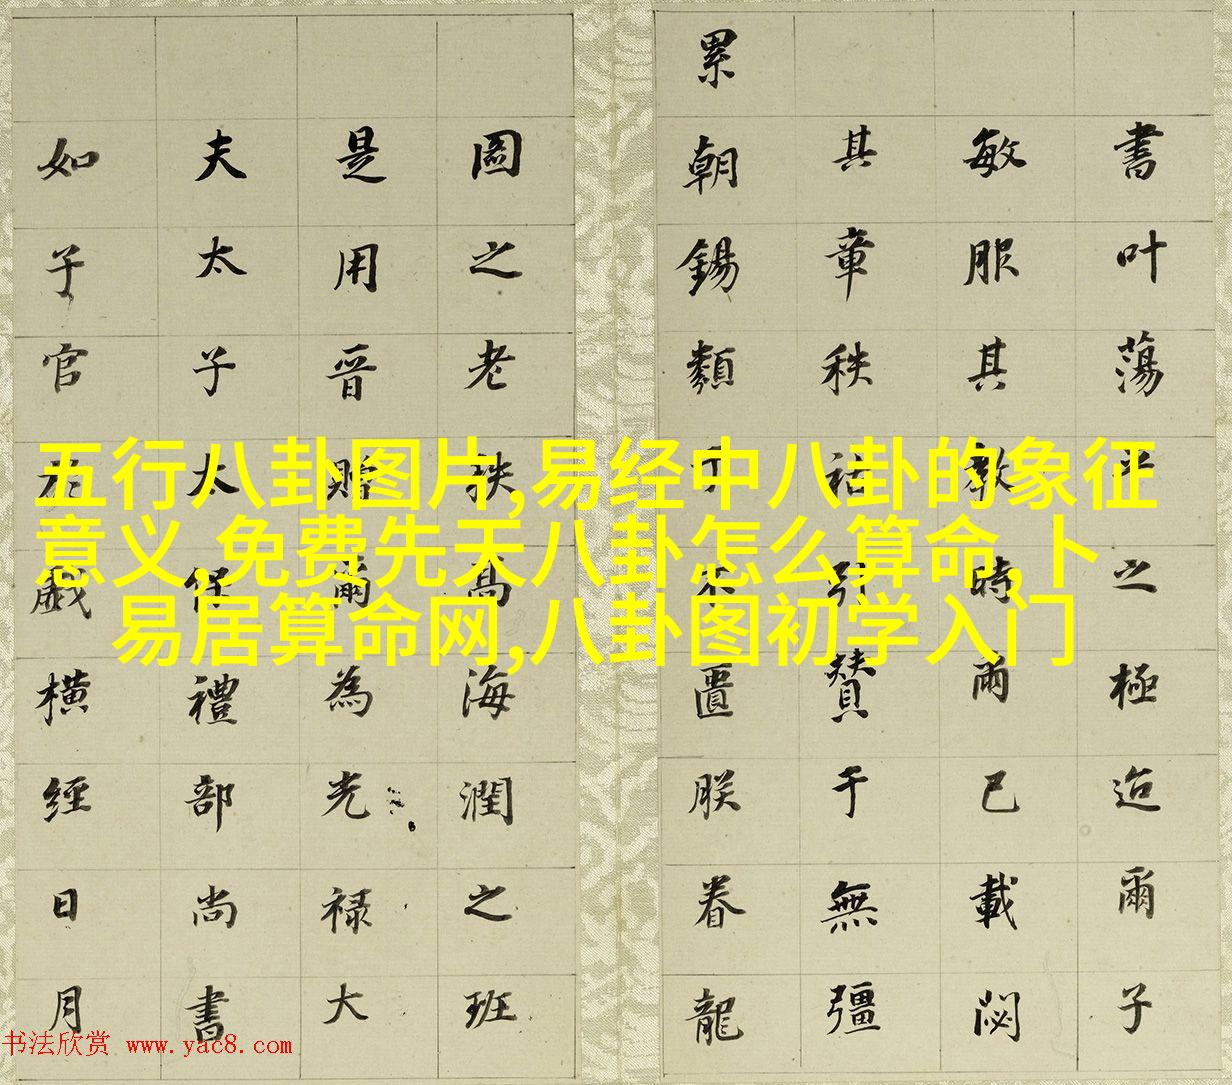 五行八卦图片,易经中八卦的象征
意义,免费先天八卦怎么算命,卜
易居算命网,八卦图初学入门
書叶蕩平之極迨爾子
敏服其教時雨已載閟
其章秩引賛于無彊
累朝錫類于不匱朕眷龍
圖之老秩高海潤之班
是用晉贈爾為光禄大
夫太子太保禮部尚書
如子官於戲橫經日月
书法欣赏 www.yac8.com